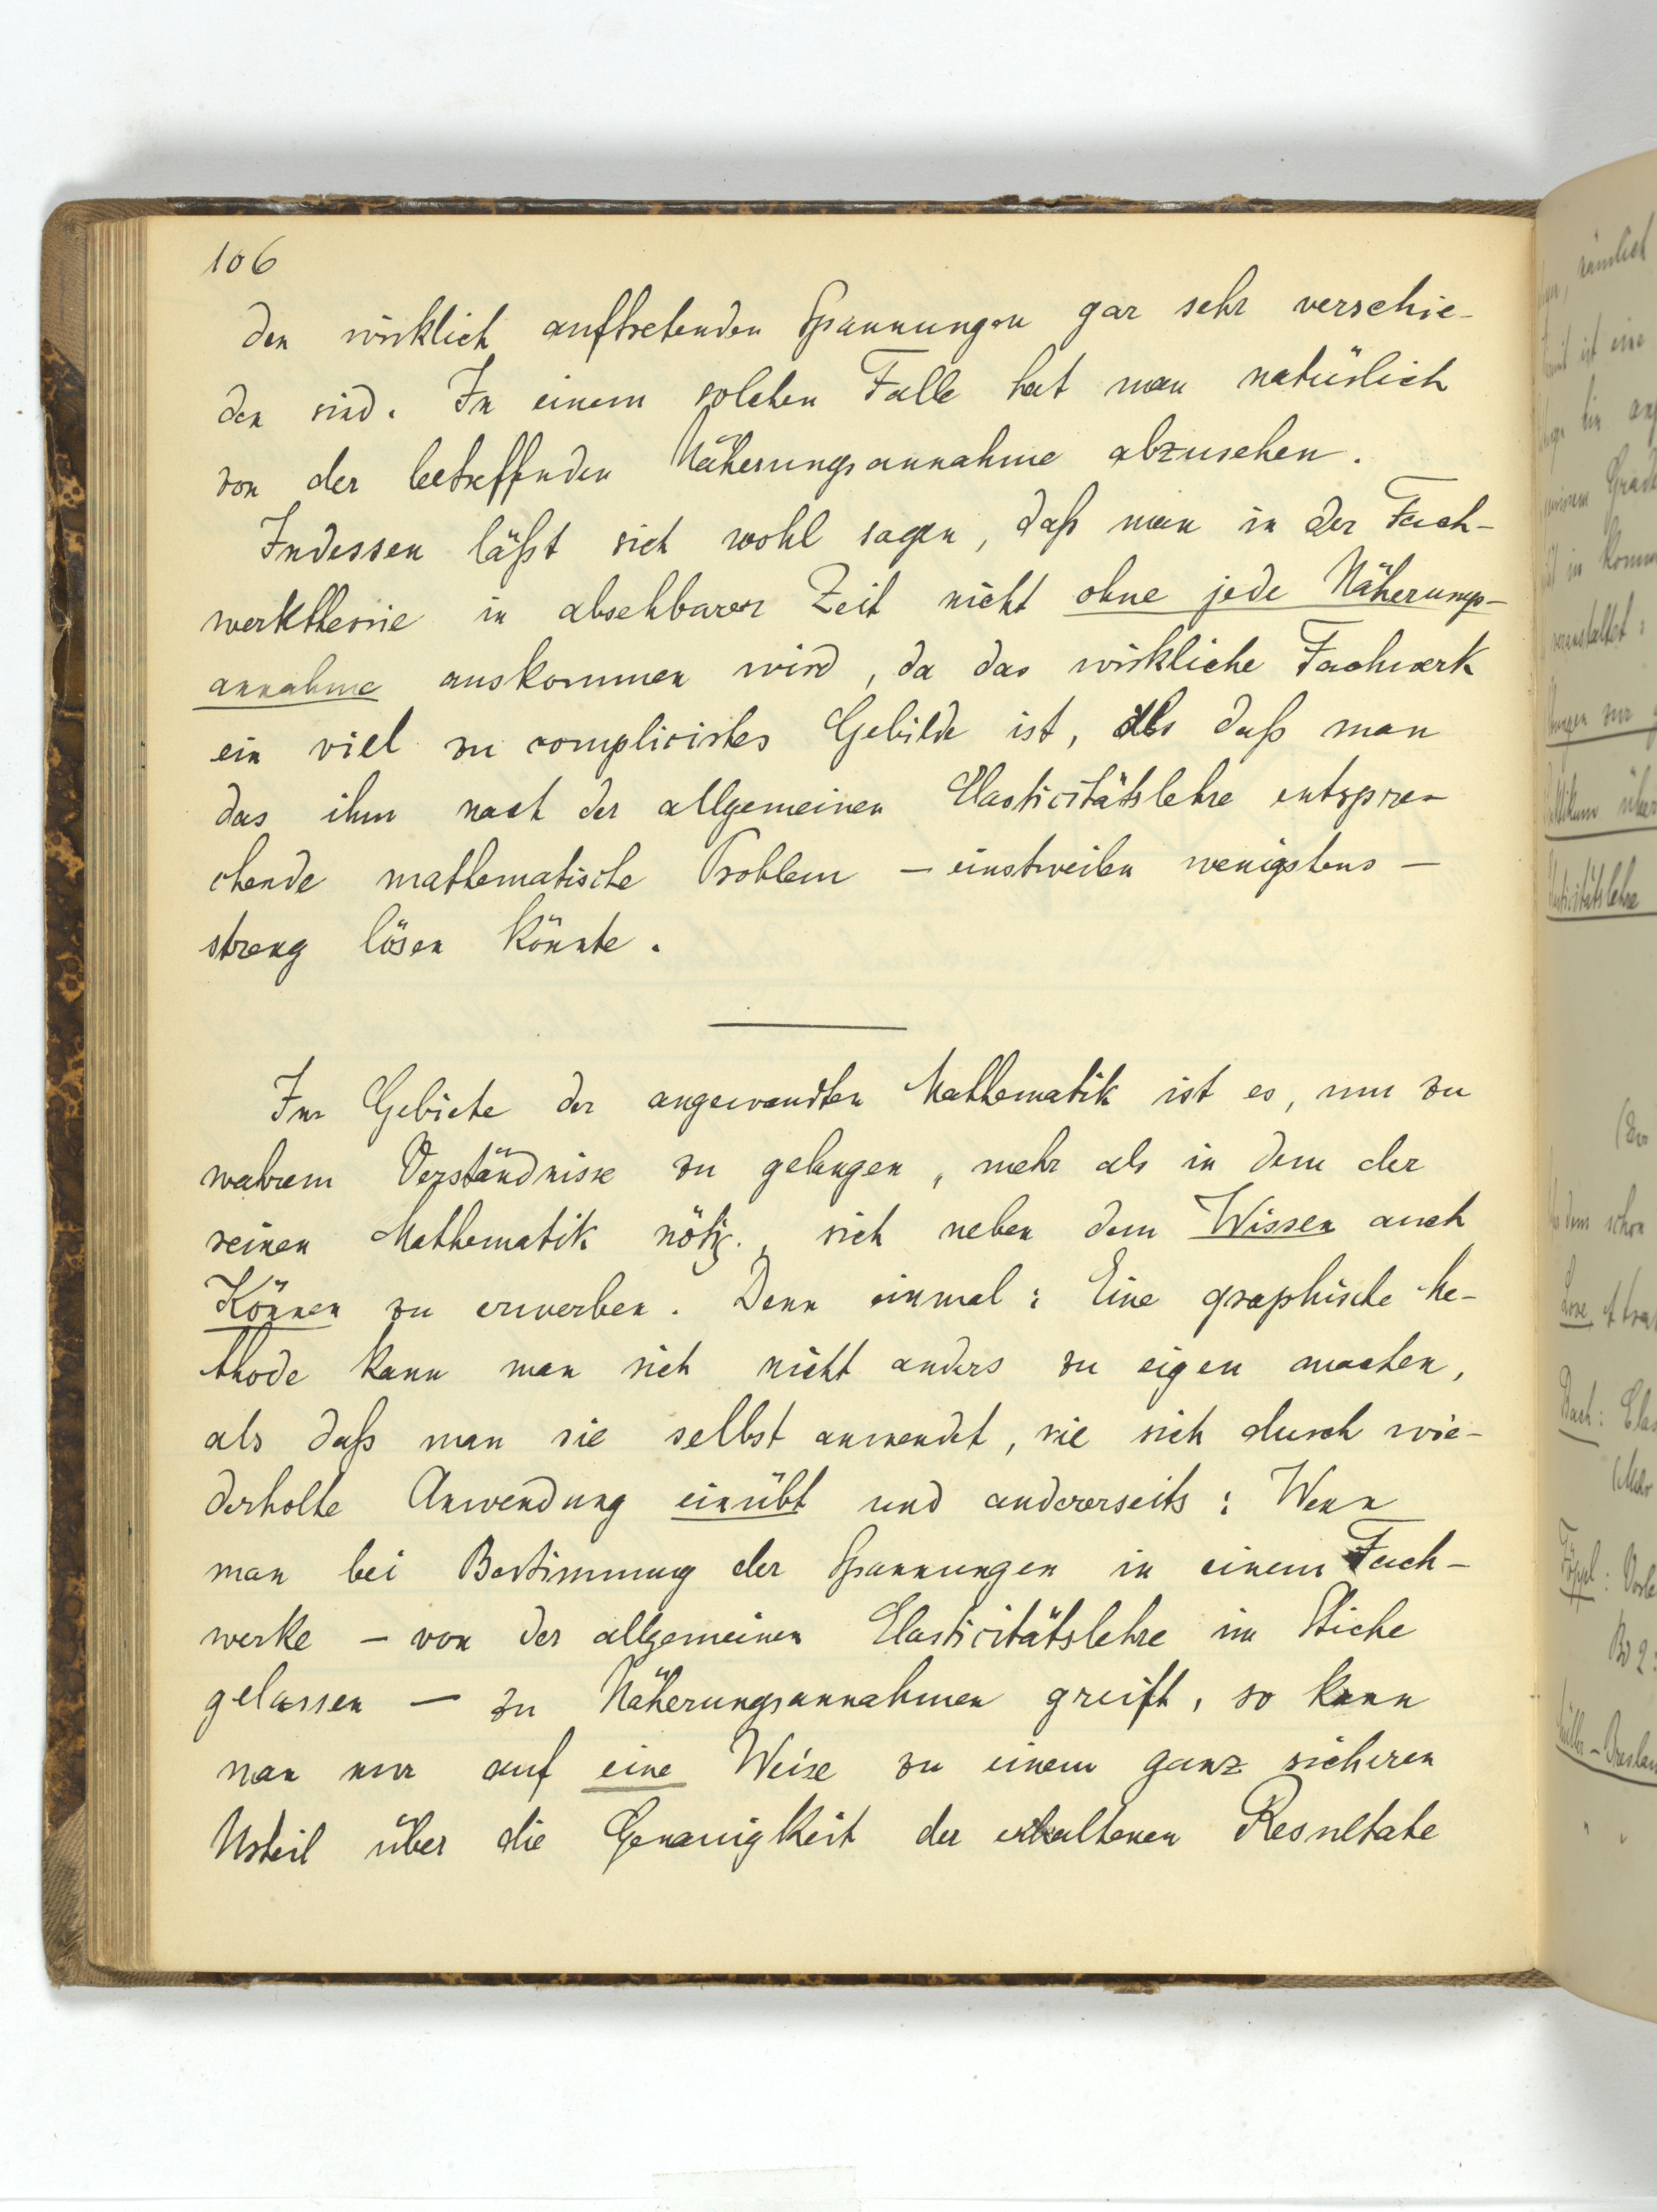 106
den wirklich auftretenden Spannungen gar sehr verschie-
den sind. In einem solchen Falle hat man natürlich
von der betreffenden Näherungsannahme abzusehen.
Indessen läßt sich wohl sagen, daß man in der Fach-
werktheorie in absehbarer Zeit nicht ohne jede Näherungs-
annahme auskommen wird, da das wirkliche Fachwerk
ein viel zu compliciertes Gebilde ist, als daß man
das ihm nach der allgemeinen Elasticitätslehre entspre-
chende mathematische Problem – einstweilen wenigstens –
streng lösen könnte.
Im Gebiete der angewandten Mathematik ist es, um zu
wahrem Verständnisse zu gelangen, mehr als in dem der
reinen Mathematik nötig, sich neben dem Wissen auch
Können zu erwerben. Denn einmal: Eine graphische Me-
thode kann man sich nicht anders zu eigen machen,
als daß man sie selbst anwendet, sie sich durch wie-
derholte Anwendung einübt und andererseits: Wenn
man bei Bestimmung der Spannungen in einem Fach-
werke – von der allgemeinen Elasticitätslehre im Stiche
gelassen – zu Näherungsannahmen greift, so kann
man nur auf eine Weise zu einem ganz sicheren
Urteil über die Genauigkeit der erhaltenen Resultate
nämlich
ist eine
Grade
in
veranstaltet:
zur
über
Elasticitätslehre
dem schon
Love
Bach: Elas
Föppl: Vorle
Bd 2:
Müller-Breslau